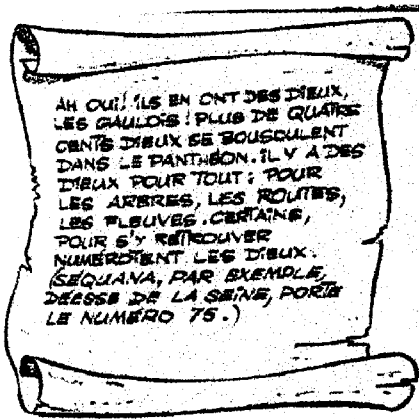 AH OUI! ILS EN ONT DES DIEUX,
LES GAULOIS! PLUS DE QUATRE
CENTS DIEUX SE BOUSCULENT
DANS LE PANTHÉON. IL Y A DES
DIEUX POUR TOUT: POUR
LES ARBRES, LES ROUTES,
LES FLEUVES. CERTAINS,
POUR S'Y RETROUVER
NUMÉROTENT LES DIEUX.
(SEQUANA, PAR EXEMPLE,
DÉESSE DE LA SEINE, PORTE
LE NUMÉRO 75.)